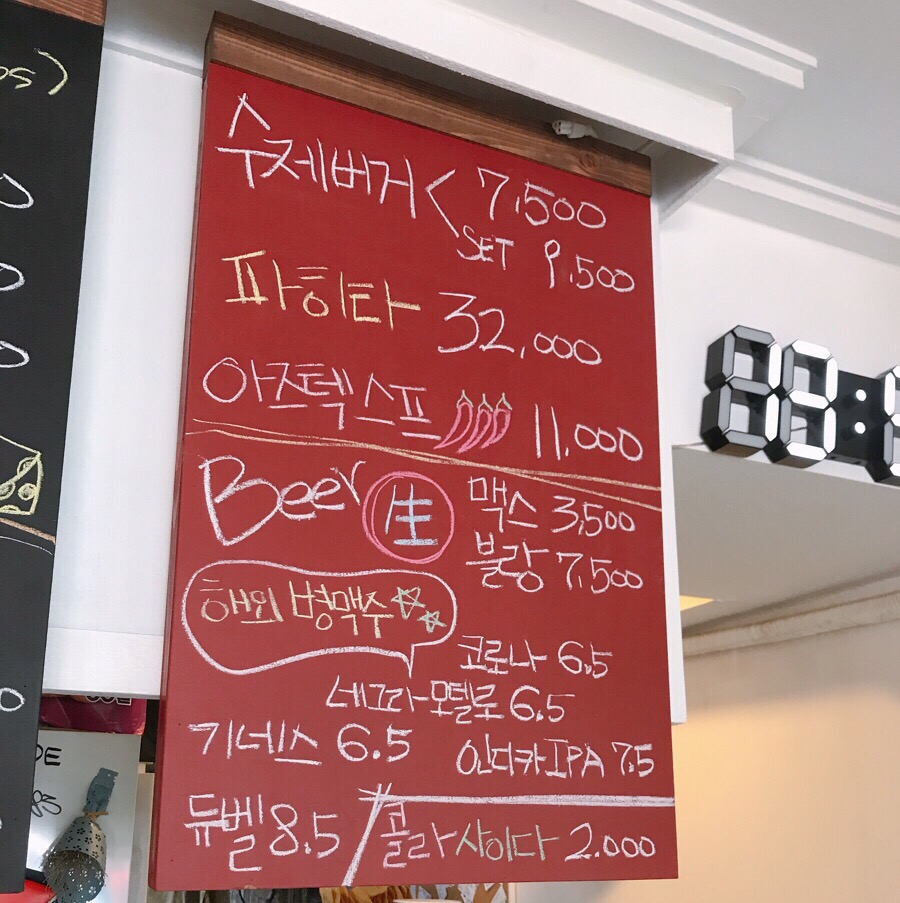 os)
수제버거 < 7,500
SET 9,500
파히타 32,000
아즈텍스프 11,000
Beer 生 맥스 3,500
블랑 7,500
해외 병맥주
코로나 6.5
네그라모델로 6.5
기네스 6.5 인디카 IPA 7.5
듀벨 8.5 / 콜라 사이다 2.000
DE